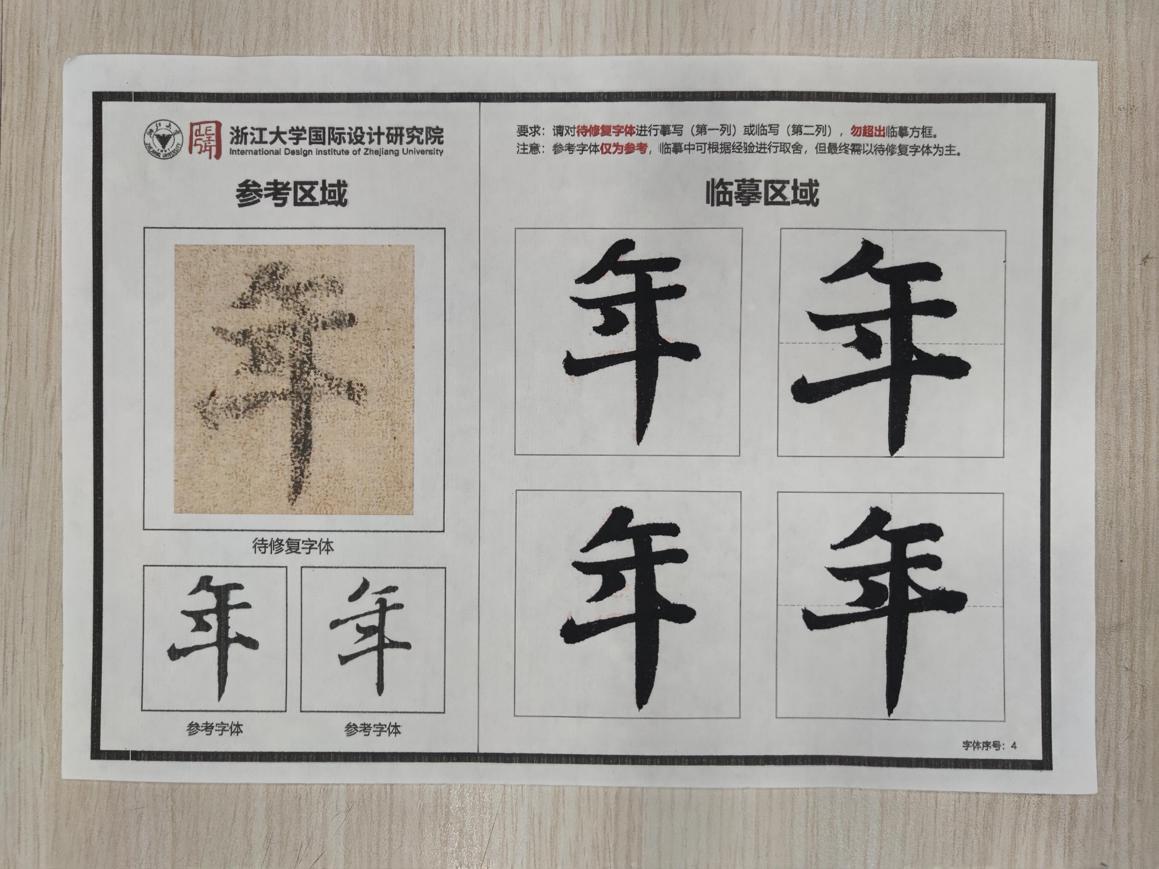 浙江大学国际设计研究院
International Design Institute of Zhejiang University
参考区域
年
待修复字体
年 年
参考字体 参考字体
要求：请对待修复字体进行摹写（第一列）或临写（第二列），勿超出临摹方框。
注意：参考字体仅为参考，临摹中可根据经验进行取舍，但最终需以待修复字体为主。
临摹区域
年 年
年 年
字体序号：4